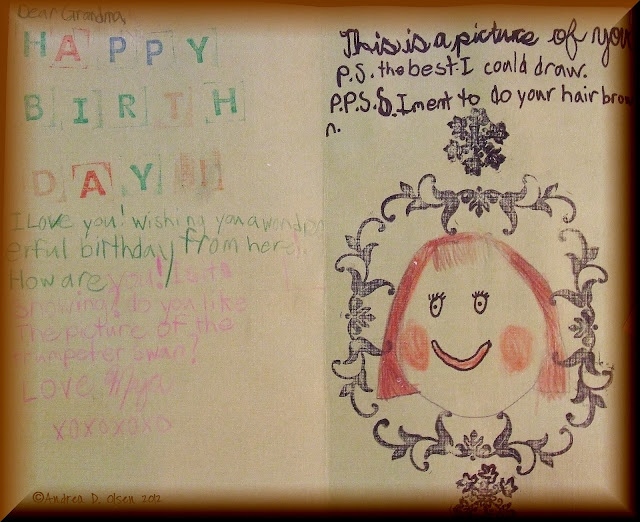 Dear Grandma,
HAPPY
BIRTH
DAY!!
I Love you! wishing you a wond
erful birthday from here.
How are you! Is it
snowing? Do you like
The picture of the
trumpeter swan?
LOVE Mya
XOXOXOXO
This is a picture of you
P.S. the best I could draw.
P.P.S.S. I ment to do your hair brow
n.
©Andrea D. Olsen 2012